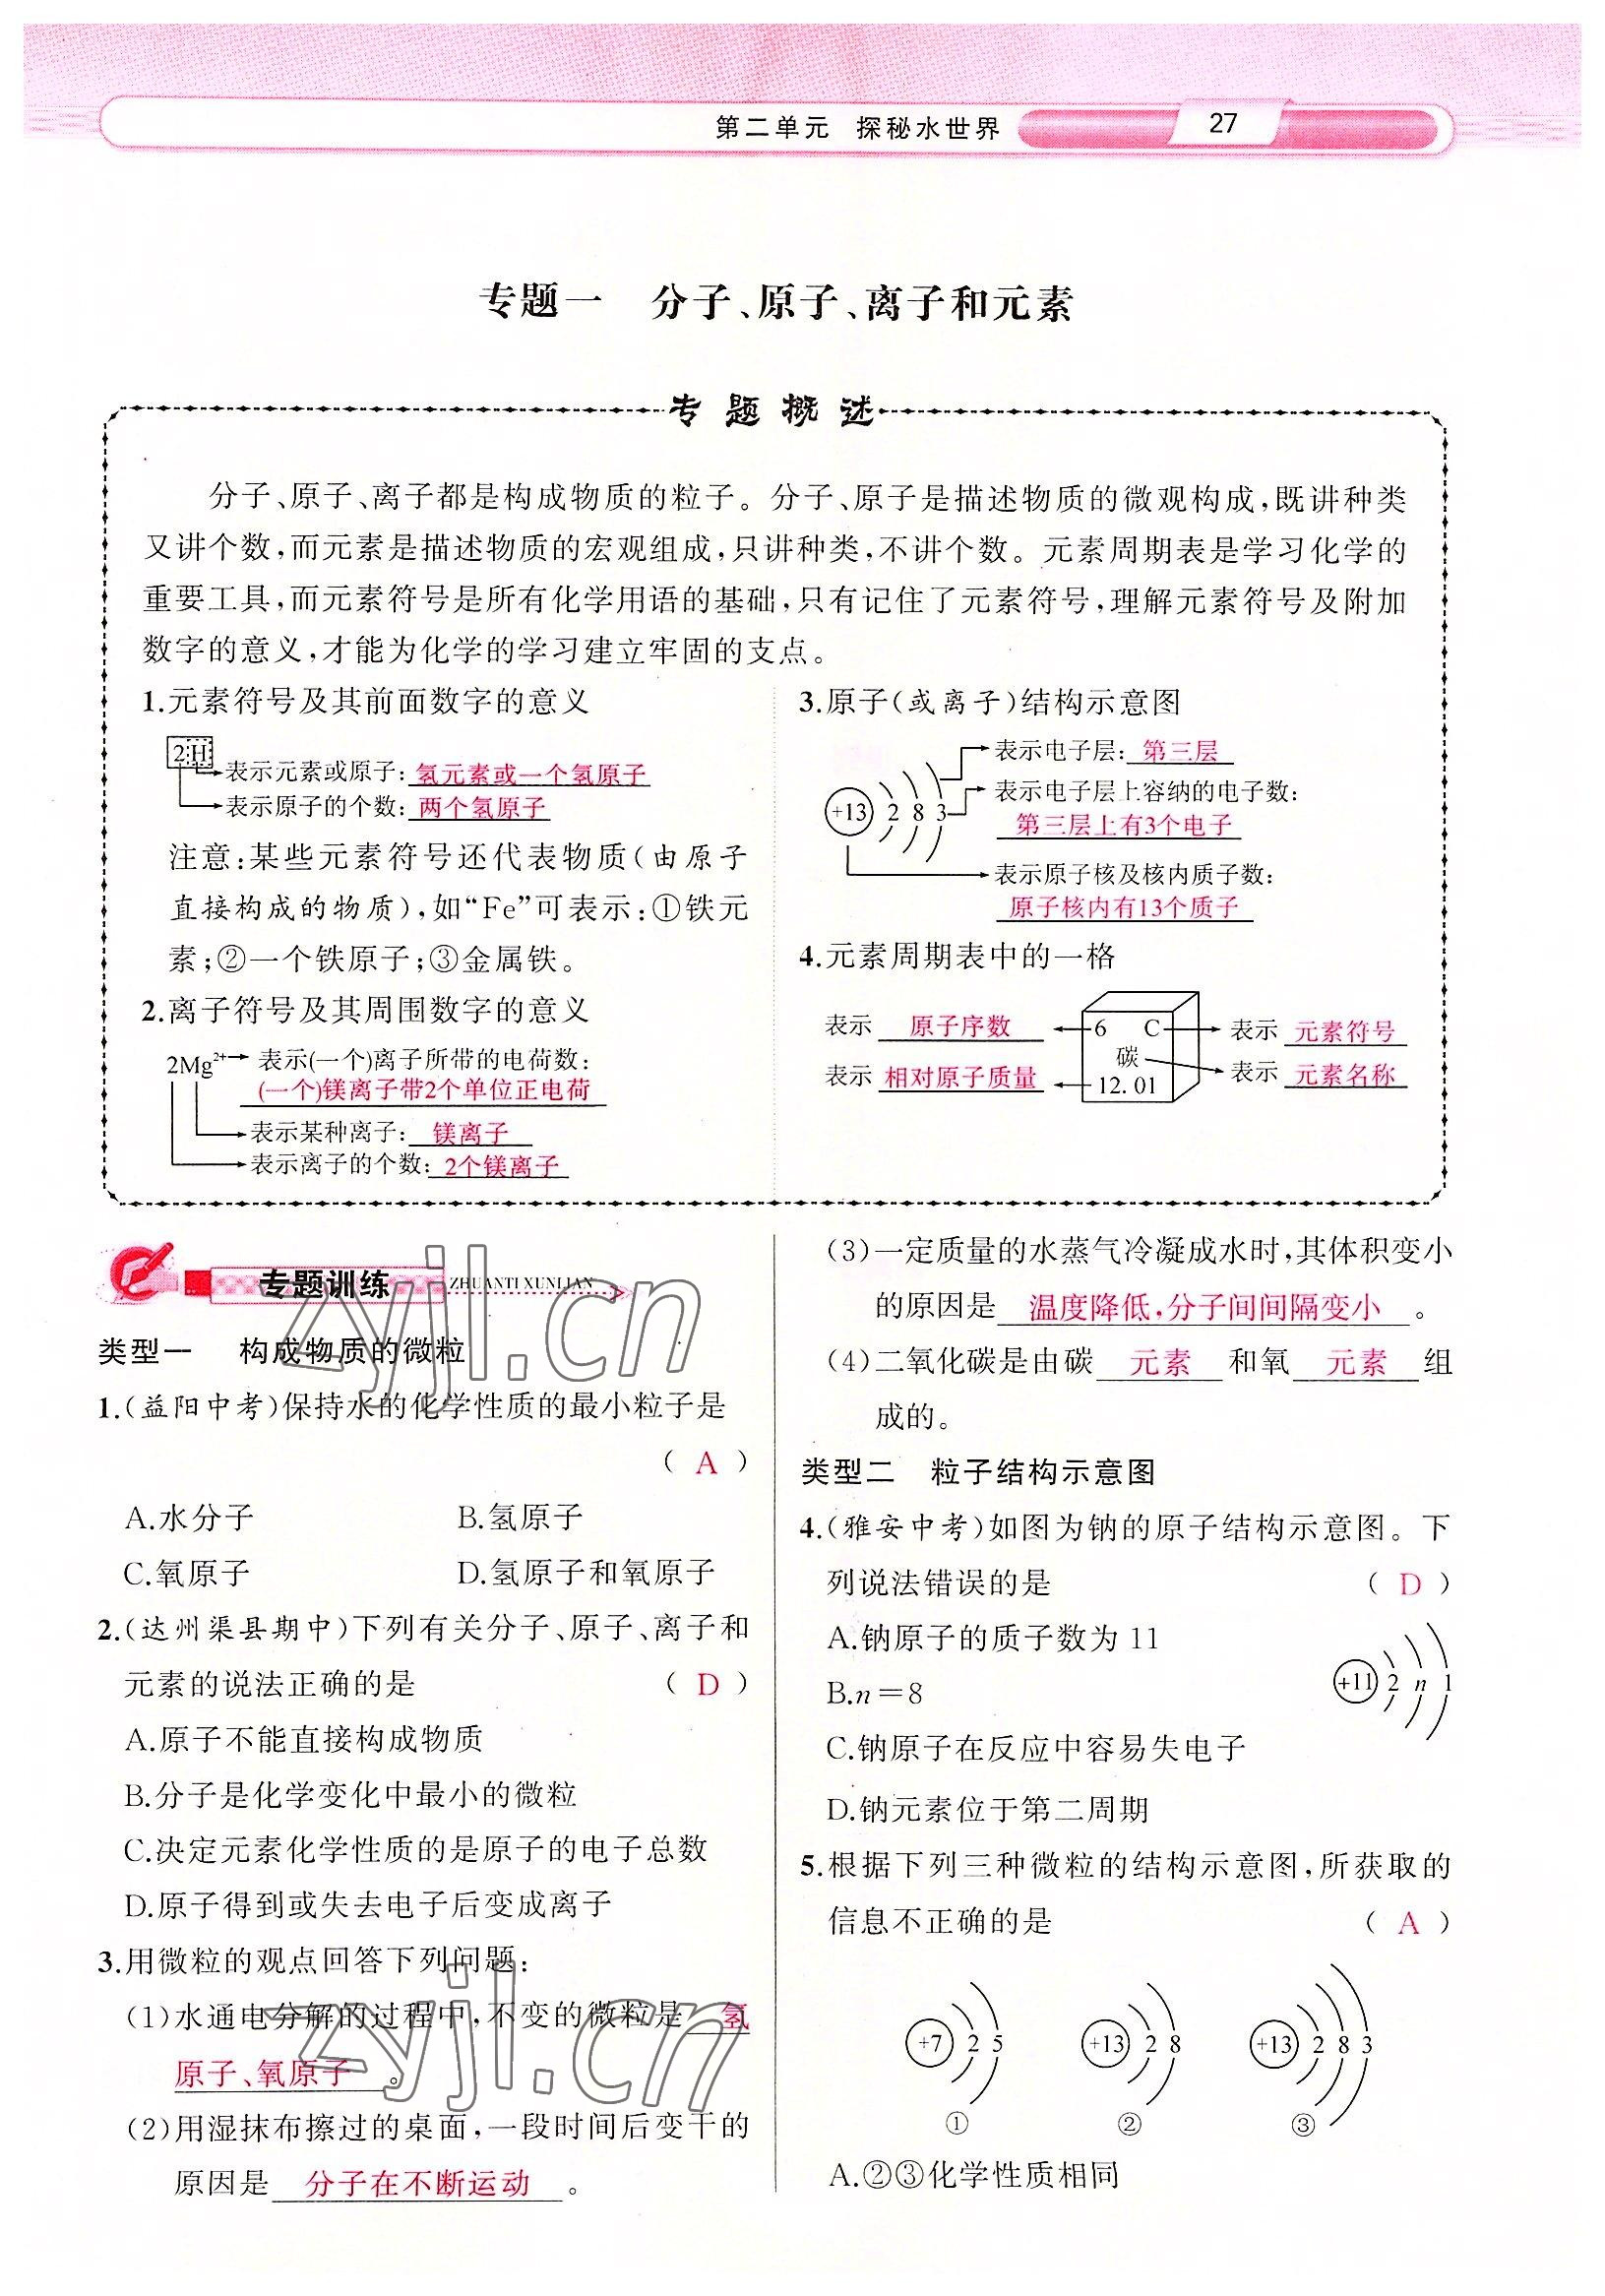 第二单元 探秘水世界 27
专题一 分子、原子、离子和元素
专题概述
分子、原子、离子都是构成物质的粒子。分子、原子是描述物质的微观构成,既讲种类
又讲个数,而元素是描述物质的宏观组成,只讲种类,不讲个数。元素周期表是学习化学的
重要工具,而元素符号是所有化学用语的基础,只有记住了元素符号,理解元素符号及附加
数字的意义,才能为化学的学习建立牢固的支点。
1.元素符号及其前面数字的意义
2H
表示元素或原子:氢元素或一个氢原子
表示原子的个数:两个氢原子
注意:某些元素符号还代表物质(由原子
直接构成的物质),如“Fe”可表示:①铁元
素;②一个铁原子;③金属铁。
2.离子符号及其周围数字的意义
2Mg²⁺ 表示(一个)离子所带的电荷数:
(一个)镁离子带2个单位正电荷
表示某种离子:镁离子
表示离子的个数:2个镁离子
3.原子(或离子)结构示意图
表示电子层:第三层
表示电子层上容纳的电子数:
+13 2 8 3
第三层上有3个电子
表示原子核及核内质子数:
原子核内有13个质子
4.元素周期表中的一格
表示 原子序数 6 C 表示 元素符号
碳
表示 相对原子质量 12.01 表示 元素名称
专题训练 ZHUANTI XUNLIAN
类型一 构成物质的微粒
1.(益阳中考)保持水的化学性质的最小粒子是
( A )
A.水分子 B.氢原子
C.氧原子 D.氢原子和氧原子
2.(达州渠县期中)下列有关分子、原子、离子和
元素的说法正确的是 ( D )
A.原子不能直接构成物质
B.分子是化学变化中最小的微粒
C.决定元素化学性质的是原子的电子总数
D.原子得到或失去电子后变成离子
3.用微粒的观点回答下列问题:
(1)水通电分解的过程中,不变的微粒是 氢
原子、氧原子 。
(2)用湿抹布擦过的桌面,一段时间后变干的
原因是 分子在不断运动 。
(3)一定质量的水蒸气冷凝成水时,其体积变小
的原因是 温度降低,分子间间隔变小 。
(4)二氧化碳是由碳 元素 和氧 元素 组
成的。
类型二 粒子结构示意图
4.(雅安中考)如图为钠的原子结构示意图。下
列说法错误的是 ( D )
A.钠原子的质子数为 11
B.n=8
+11 2 n 1
C.钠原子在反应中容易失电子
D.钠元素位于第二周期
5.根据下列三种微粒的结构示意图,所获取的
信息不正确的是 ( A )
+7 2 5 +13 2 8 +13 2 8 3
① ② ③
A.②③化学性质相同
zyjl.cn
zyjl.cn